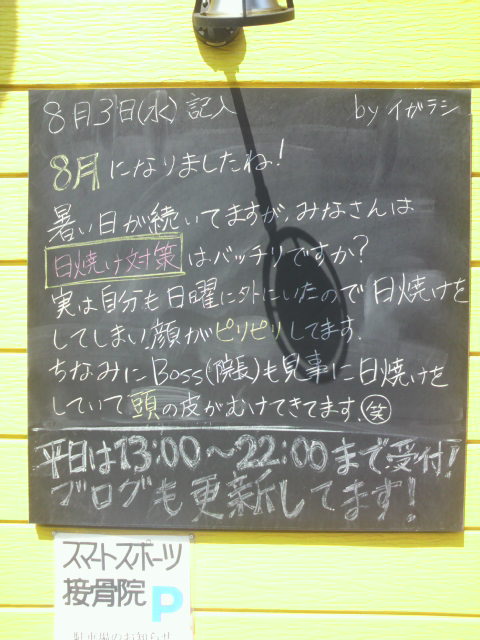 8月3日(水) 記入 by イガラシ
8月になりましたね!
暑い日が続いてますが、みなさんは
日焼け対策はバッチリですか?
実は自分も日曜に外にいたので日焼けを
してしまい顔がピリピリしてます.
ちなみにBoss(院長)も見事に日焼けを
していて頭の皮がむけてきてます.笑
平日は13:00〜22:00まで受付!
ブログも更新してます!
スマートスポーツ
接骨院 P
駐車場のお知らせ